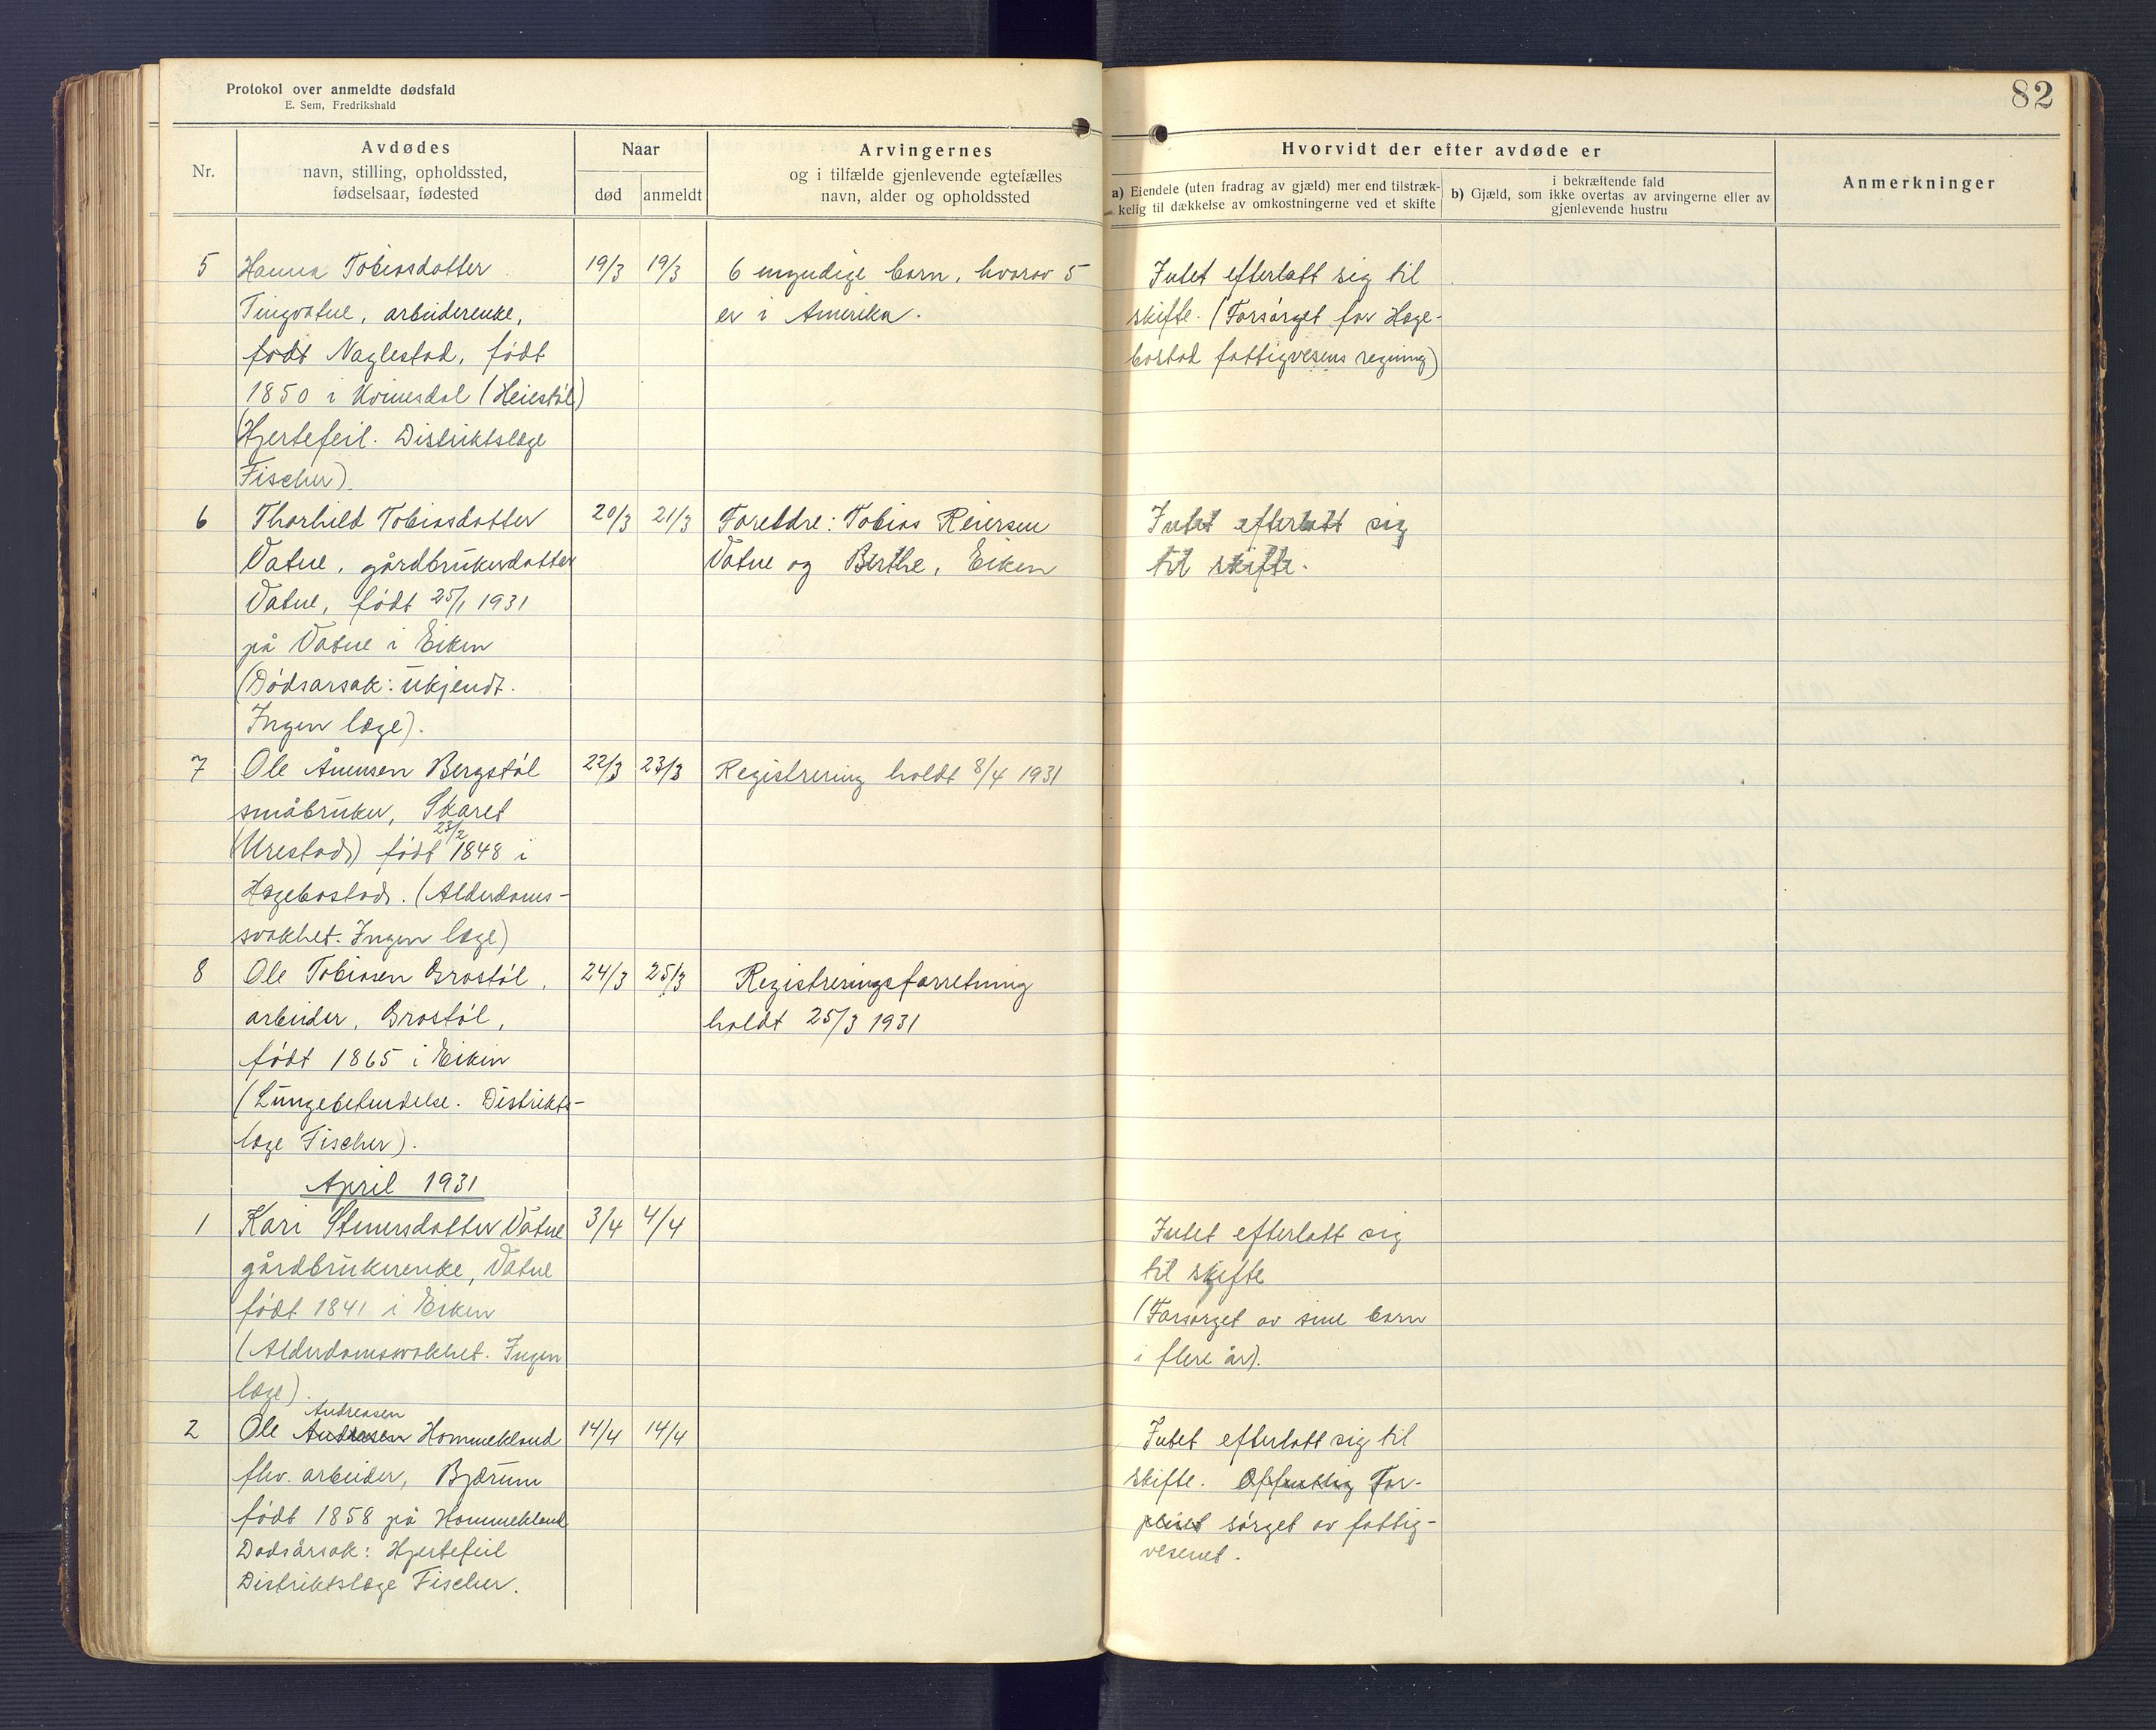 Protokol over anmeldte dødsfald
E. Sem, Fredrikshald
82
Nr.
Avdødes
navn, stilling, opholdssted,
fødselsaar, fødested
Naar
død
anmeldt
Arvingernes
og i tilfælde gjenlevende egtefælles
navn, alder og opholdssted
Hvorvidt der efter avdøde er
a) Eiendele (uten fradrag av gjæld) mer end tilstræk-
kelig til dækkelse av omkostningerne ved et skifte
i bekræftende fald
b) Gjæld, som ikke overtas av arvingerne eller av
gjenlevende hustru
Anmerkninger
5
Hanna Tobiasdatter
Tingvatne, arbeiderenke,
født Naglestad, født
1850 i Kvinesdal (Heiestøl)
(Hjertefeil. Distriktslæge
Fischer).
19/3
19/3
6 myndige barn, hvorav 5
er i Amerika.
Intet efterlatt sig til
skifte. (Forsørget for Hæge-
bostad fattigvesens regning)
6
Thorhild Tobiasdatter
Vatne, gårdbrukerdatter
Vatne, født 25/1 1931
på Vatne i Eiken
(Dødsarsak: ukjendt.
Ingen læge).
20/3
21/3
Foreldre: Tobias Reiersen
Vatne og Berthe, Eiken
Intet efterlatt sig
til skifte.
7
Ole Ånensen Bergstøl
småbruker, Skaret
(Urestad) født 23/2 1848 i
Hægebostad. (Alderdoms-
svakhet. Ingen læge)
22/3
23/3
Registrering holdt 8/4 1931
8
Ole Tobiasen Grastøl,
arbeider, Grostøl,
født 1865 i Eiken
(Lungebetendelse. Distrikts-
læge Fischer).
24/3
25/3
Registreringsforretning
holdt 25/3 1931
April 1931
1
Kari Stenersdatter Vatne
gårdbrukerenke, Vatne
født 1841 i Eiken
(Alderdomssvakhet. Ingen
læge).
3/4
4/4
Intet efterlatt sig
til skifte
(Forsørget av sine barn
i flere år).
2
Andreasen
Ole Andresen Hommekland
fhv. arbeider, Bjærum
født 1858 på Hommekland
Dødsårsak: Hjertefeil
Distriktslæge Fischer.
14/4
14/4
Intet efterlatt sig til
skifte. Offentlig For-
pleiet sørget av fattig-
vesenet.